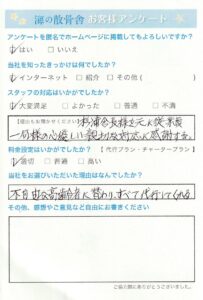 海の散骨舎 お客様アンケート
アンケートを匿名でホームページに掲載してもよろしいですか?
はい □いいえ
当社を知ったきっかけは何でしたか?
インターネット □紹介 □その他( )
スタッフの対応はいかがでしたか?
大変満足 □よかった □普通 □不満
【理由もお聞かせください】
一同様の心優しい親切な対応に感謝する。
料金設定はいかがでしたか?【代行プラン・チャータープラン】
適切 □普通 □高い
当社をお選びいただいた理由はなんでしたか?
不自由な高齢者に替わり、すべて代行してくれる
その他、感想やご意見など自由にお書きください
ご協力誠にありがとうございました。